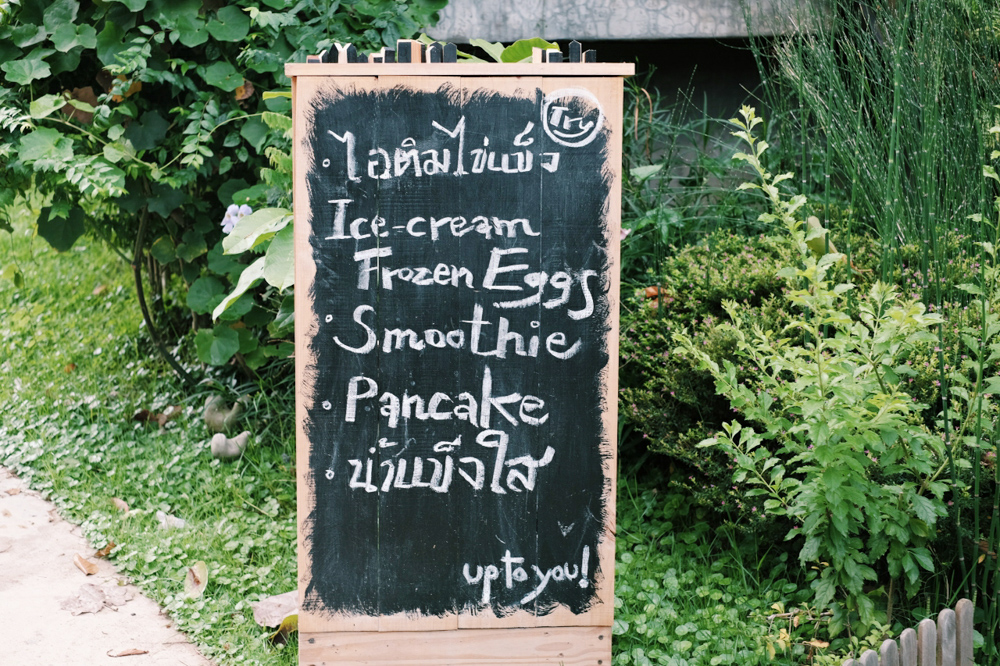 Try
• ไอติมไข่แข็ง
Ice-cream
Frozen Eggs
• Smoothie
• Pancake
• น้ำแข็งใส
up to you!